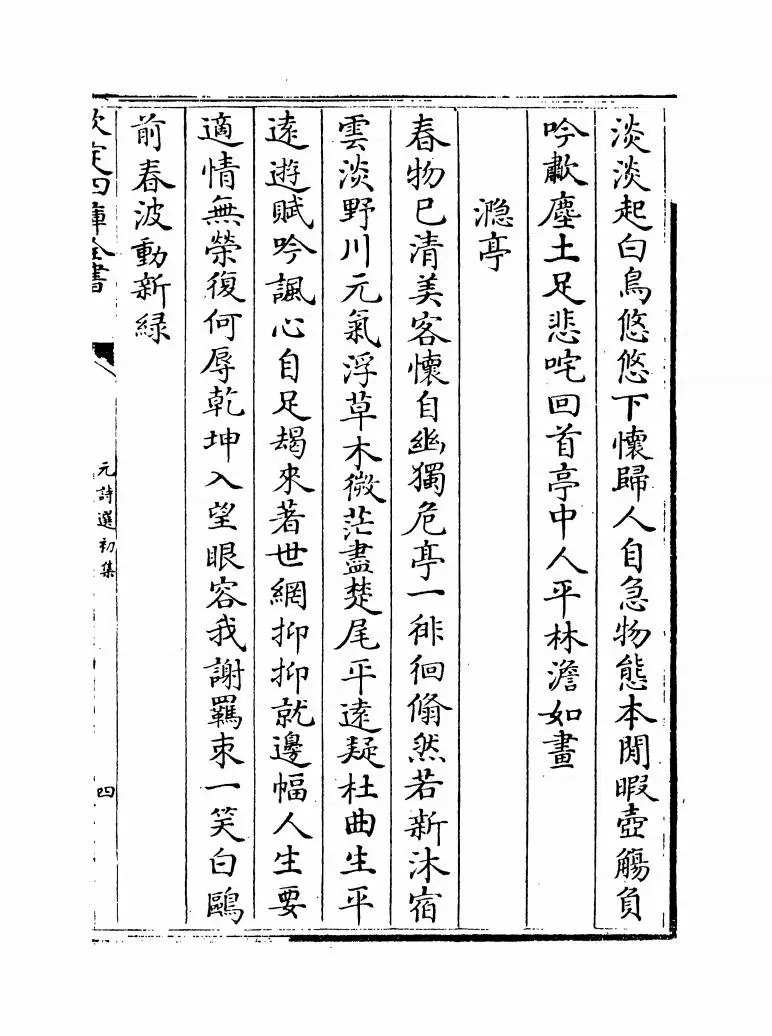 淡淡起白鳥悠悠下懷歸人自急物態本閒暇壺觴負
吟歗塵土足悲咤回首亭中人平林澹如畫
㶏亭
春物已清美客懷自幽獨危亭一徘徊翛然若新沐宿
雲淡野川元氣浮草木微茫盡楚尾平逺疑杜曲生平
逺遊賦吟諷心自足朅來著世網抑抑就邊幅人生要
適情無榮復何辱乾坤入望眼容我謝羈束一笑白鷗
前春波動新緑
欽定四庫全書
元詩選初集
四